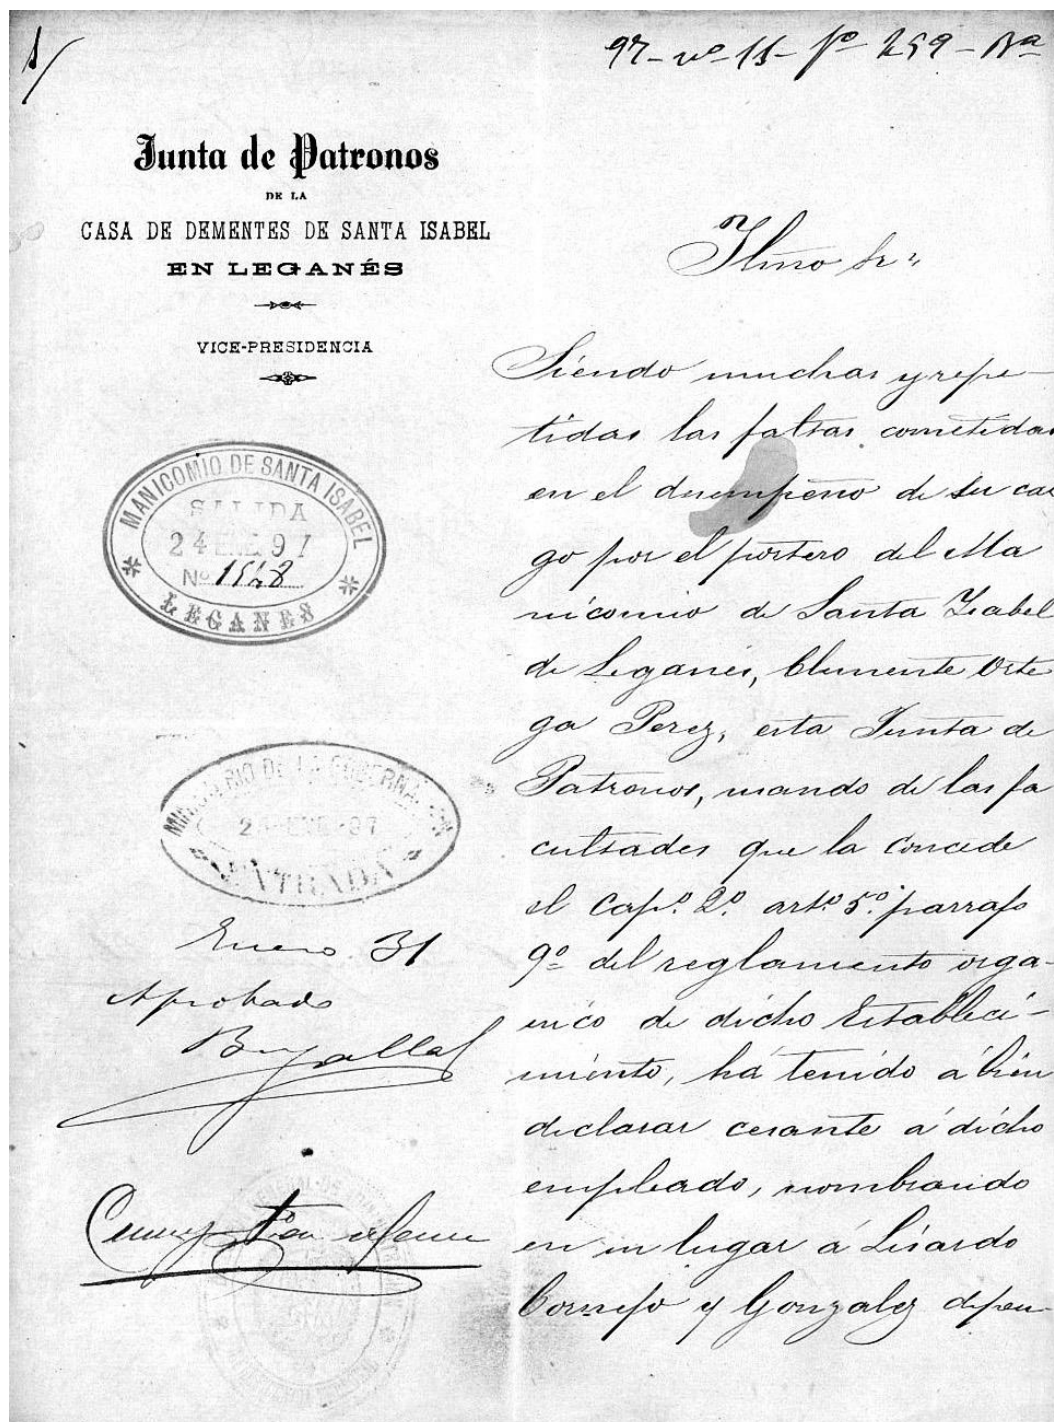 97 - nº 11 - fº 259 - Bª
Junta de Patronos
DE LA
CASA DE DEMENTES DE SANTA ISABEL
EN LEGANÉS
VICE-PRESIDENCIA
MANICOMIO DE SANTA ISABEL
SALIDA
24 ENE. 97
Nº 1548
LEGANES
MINISTERIO DE LA GOBERNACION
ENE 97
ENTRADA
Enero 31
Aprobado
Bugallal
Ilmo Sr.
Siendo muchas y repe-
tidas las faltas cometidas
en el desempeño de su car
go por el portero del Ma
nicomio de Santa Isabel
de Leganés, Clemente Orte
ga Perez, esta Junta de
Patronos, usando de las fa
cultades que la concede
el Capº. 2º. artº. 5º. parrafo
9º del reglamento orga-
nico de dicho Estableci-
miento, há tenido á bien
declarar cesante á dicho
empleado, nombrando
en su lugar á Lisardo
Cornejo y Gonzalez depen-